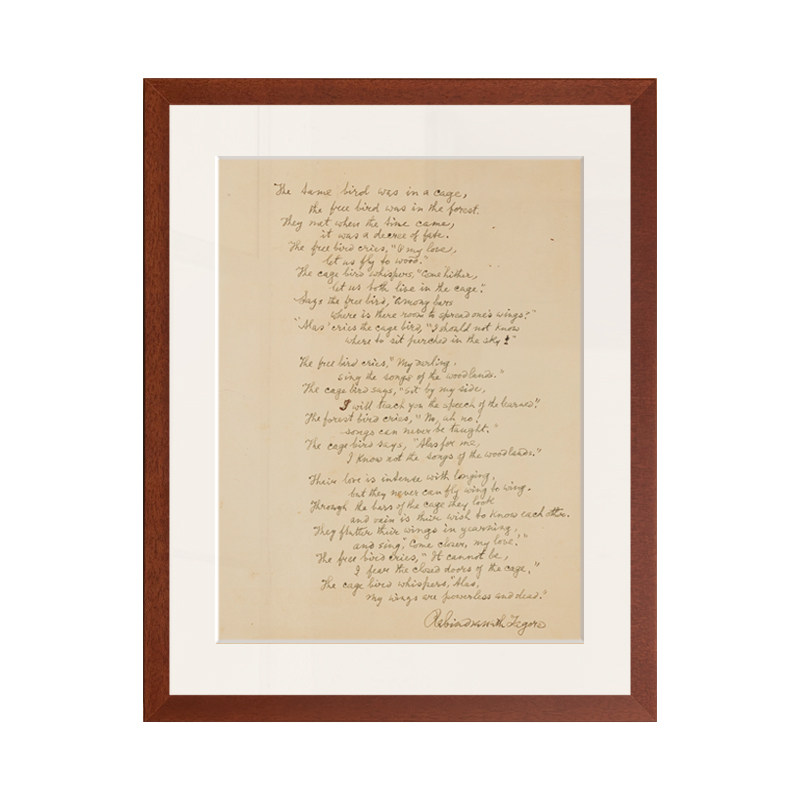 The tame bird was in a cage,
the free bird was in the forest.
They met when the time came,
it was a decree of fate.
The free bird cries, "O my love,
let us fly to wood."
The cage bird whispers, "Come hither,
let us both live in the cage."
Says the free bird, "Among bars
where is there room to spread one's wings?"
"Alas" cries the cage bird, "I should not know
where to sit perched in the sky!"
The free bird cries, "My darling,
sing the songs of the woodlands."
The cage bird says, "Sit by my side,
I will teach you the speech of the learned."
The forest bird cries, "No, ah no!
songs can never be taught."
The cage bird says, "Alas for me,
I know not the songs of the woodlands."
Their love is intense with longing,
but they never can fly wing to wing.
Through the bars of the cage they look
and vain is their wish to know each other.
They flutter their wings in yearning,
and sing, "Come closer, my love!"
The free bird cries, "It cannot be,
I fear the closed doors of the cage."
The cage bird whispers, "Alas,
my wings are powerless and dead."
Rabindranath Tagore